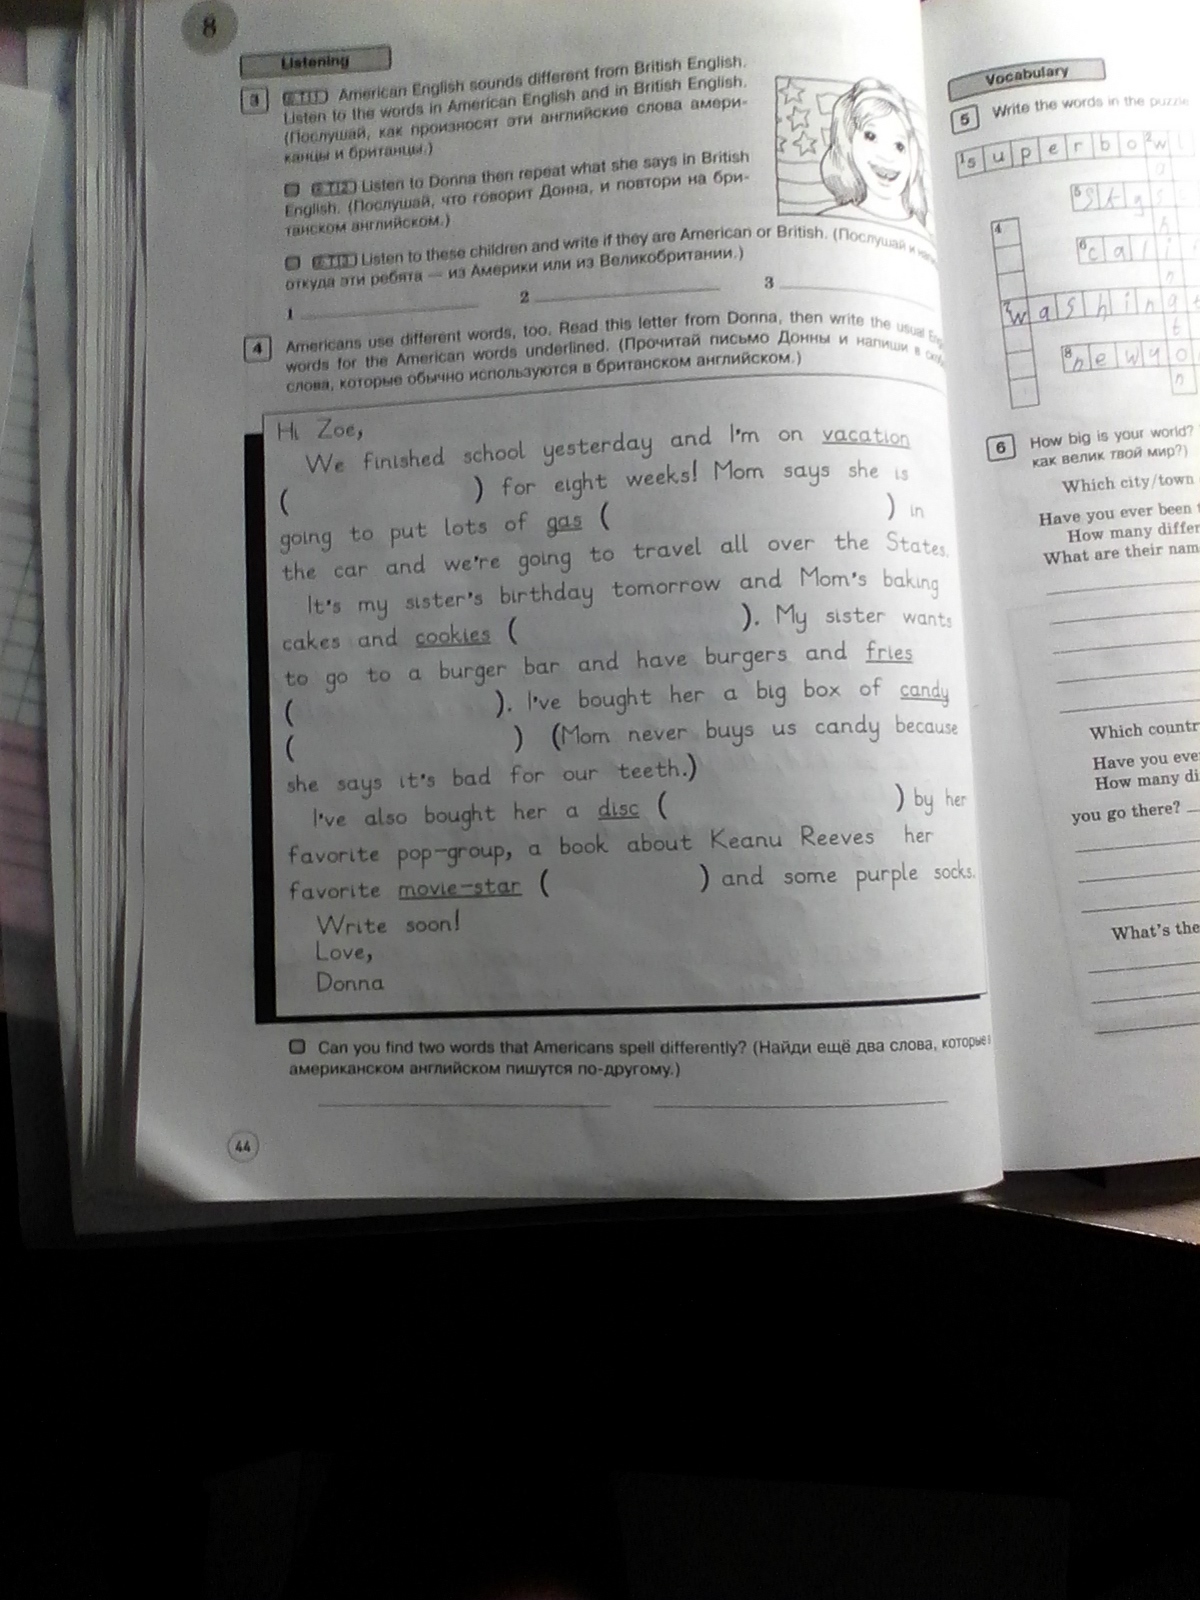 8
Listening
3 American English sounds different from British English.
Listen to the words in American English and in British English.
(Послушай, как произносят эти английские слова амери-
канцы и британцы.)
Listen to Donna then repeat what she says in British
English. (Послушай, что говорит Донна, и повтори на бри-
танском английском.)
Listen to these children and write if they are American or British. (Послушай и
откуда эти ребята — из Америки или из Великобритании.)
1 2 3
4 Americans use different words, too. Read this letter from Donna, then write the usual
words for the American words underlined. (Прочитай письмо Донны и напиши в
слова, которые обычно используются в британском английском.)
Hi Zoe,
We finished school yesterday and I'm on vacation
( ) for eight weeks! Mom says she is
going to put lots of gas ( ) in
the car and we're going to travel all over the States.
It's my sister's birthday tomorrow and Mom's baking
cakes and cookies ( ). My sister wants
to go to a burger bar and have burgers and fries
( ). I've bought her a big box of candy
( ) (Mom never buys us candy because
she says it's bad for our teeth.)
I've also bought her a disc ( ) by her
favorite pop-group, a book about Keanu Reeves her
favorite movie-star ( ) and some purple socks.
Write soon!
Love,
Donna
Can you find two words that Americans spell differently? (Найди ещё два слова, которые
американском английском пишутся по-другому.)
44
Vocabulary
5 Write the words in the puzzle
1 s u p e r b o 2 w l
4
6 c a l i
7 w a s h i n g t
8 n e w y o
6 How big is your world?
как велик твой мир?)
Which city/town
Have you ever been
How many differ
What are their nam
Which countr
Have you eve
How many di
you go there?
What's the